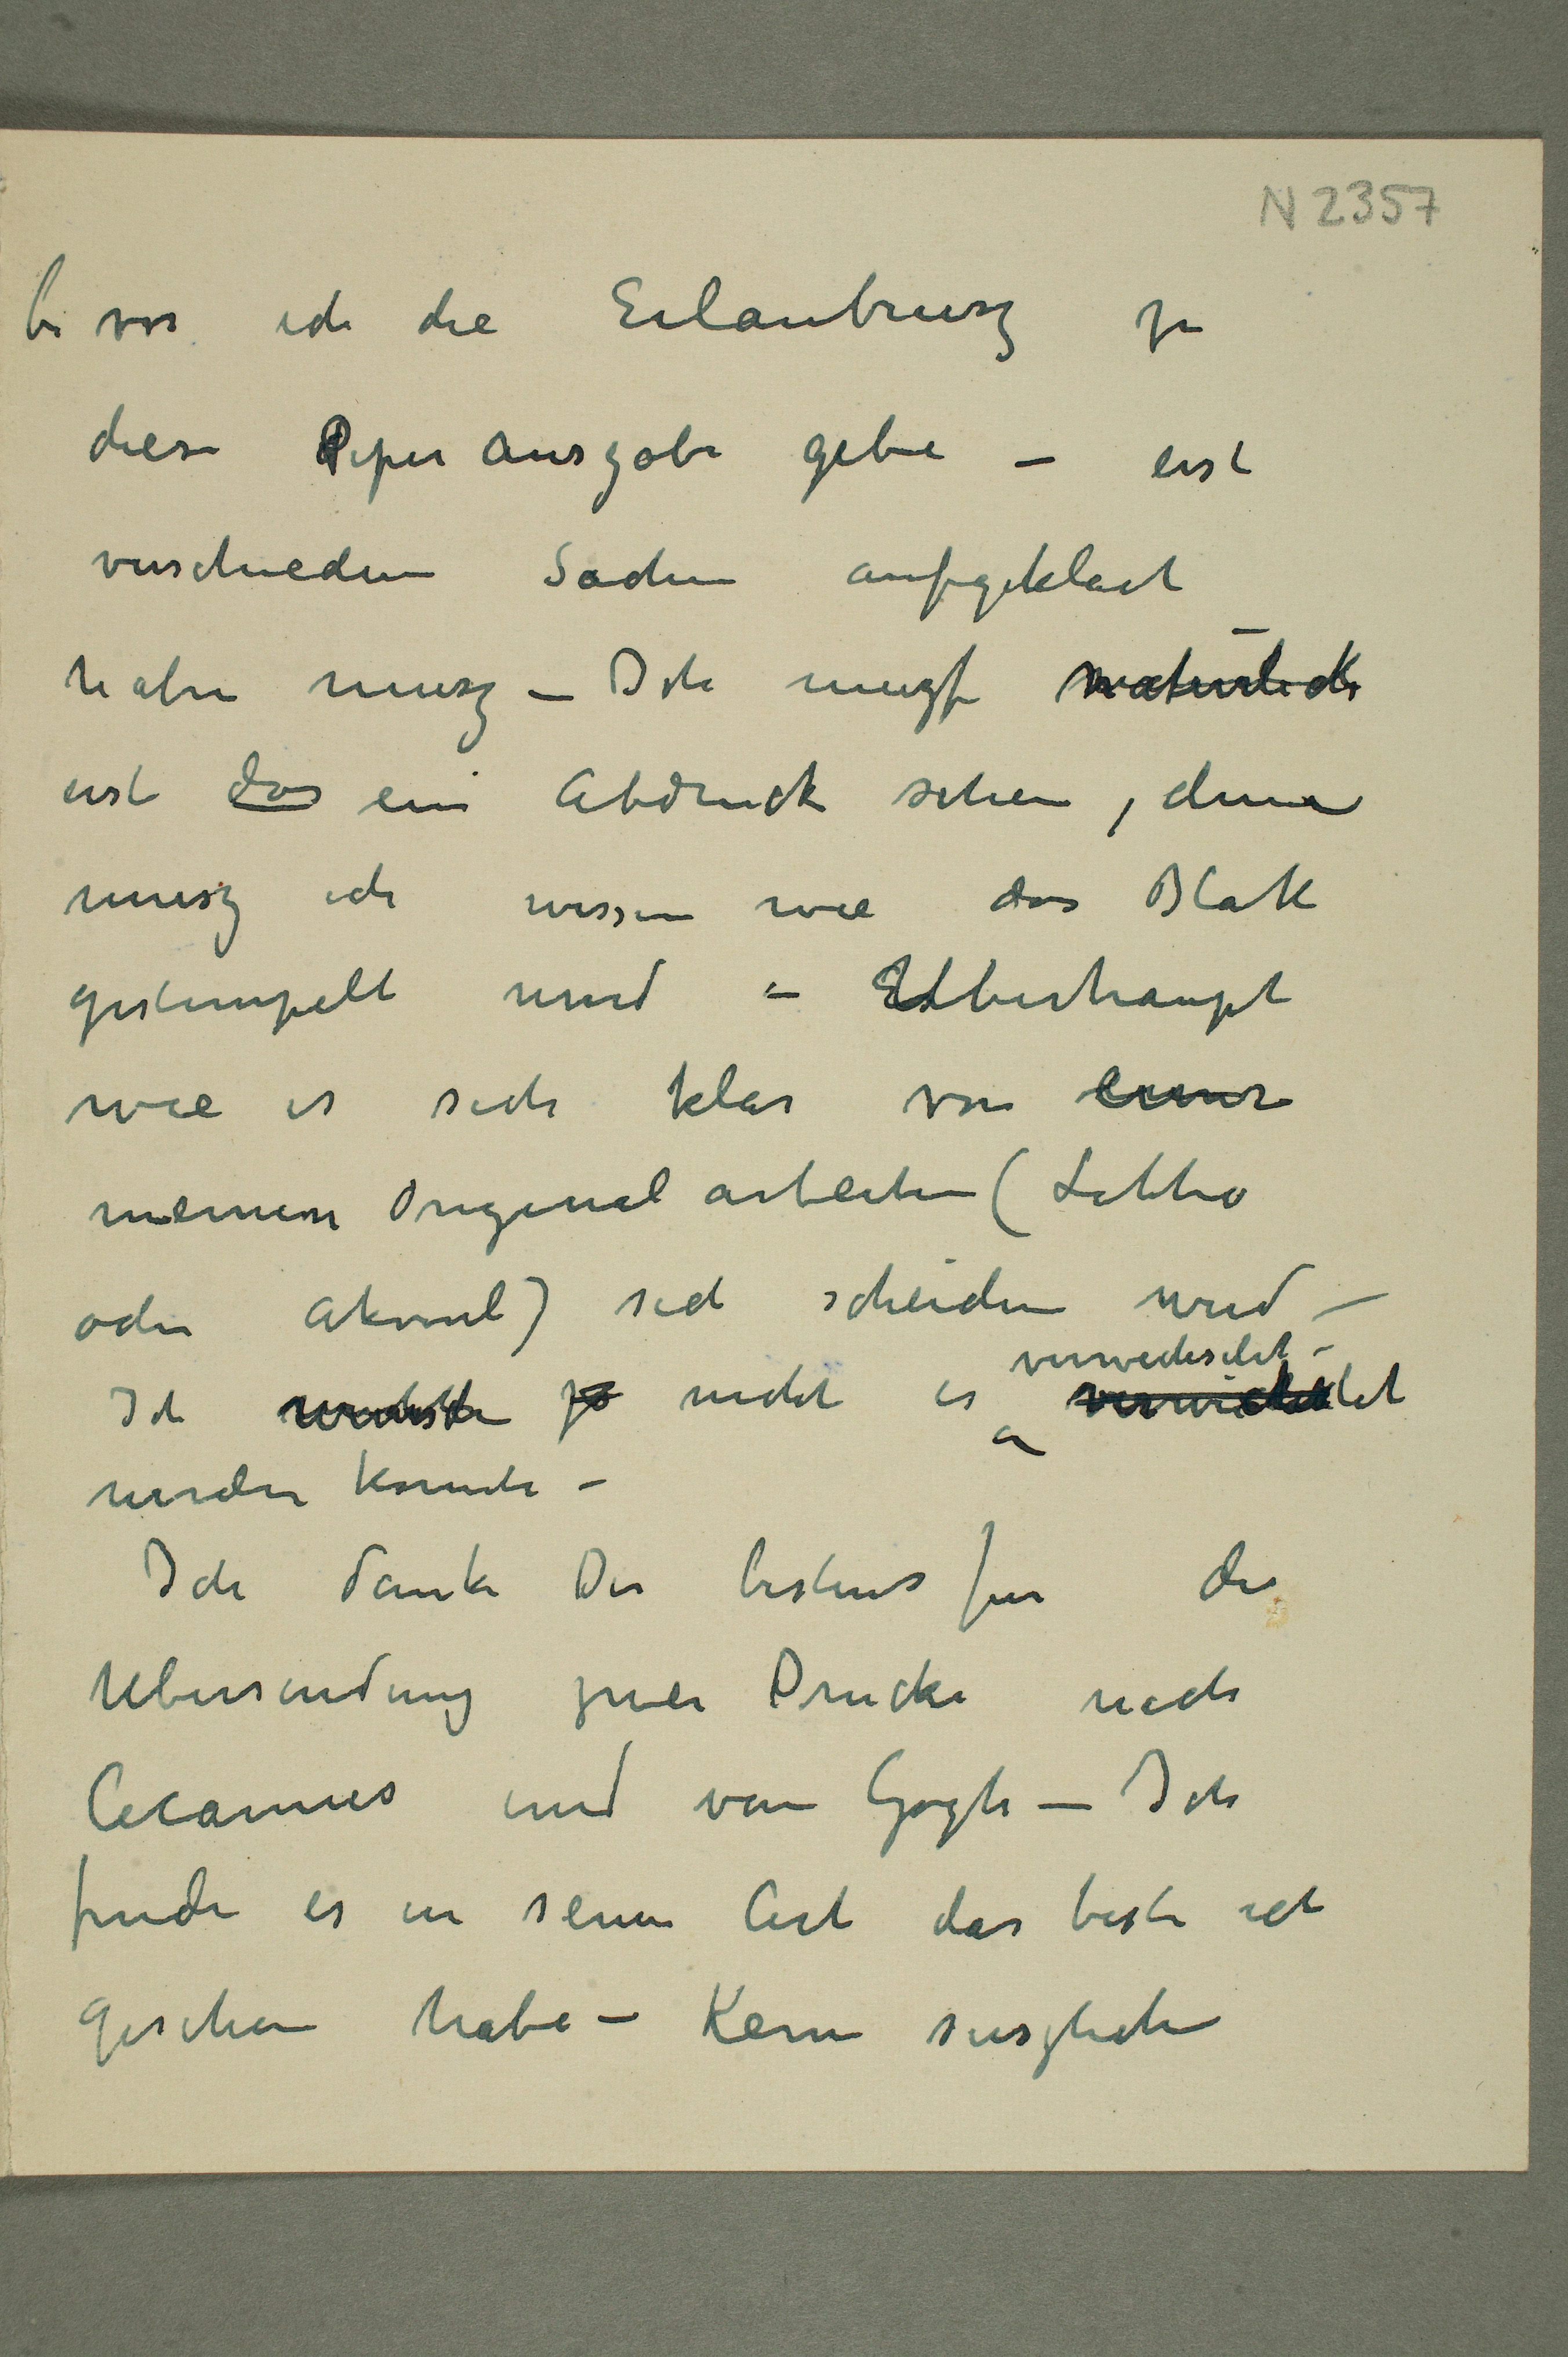 N 2357
bevor ich die Erlaubnisz zu
diese Piper ausgabe gebe – erst
verschiedene Sachen aufgeklärt
haben musz – Ich musz natürlich
erst das ein Abdruck sehen, denn
musz ich wissen wie das Blatt
gestempelt wird – Überhaupt
wie es sich klar von einer
meinen Original arbeiten (Litho
oder Akvarel) sich scheiden wird –
verwechselt –
Ich ja nicht es
werden konnte –
Ich danke Dir bestens für die
Übersendung zwei Drucke nach
Cezannes und van Gogh – Ich
finde es in seiner Art das beste ich
gesehen habe – Kein süszliche